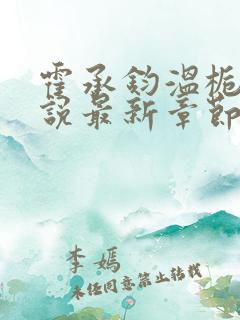 霍承钧温栀
说最新章节
李嫣
未经同意禁止转载